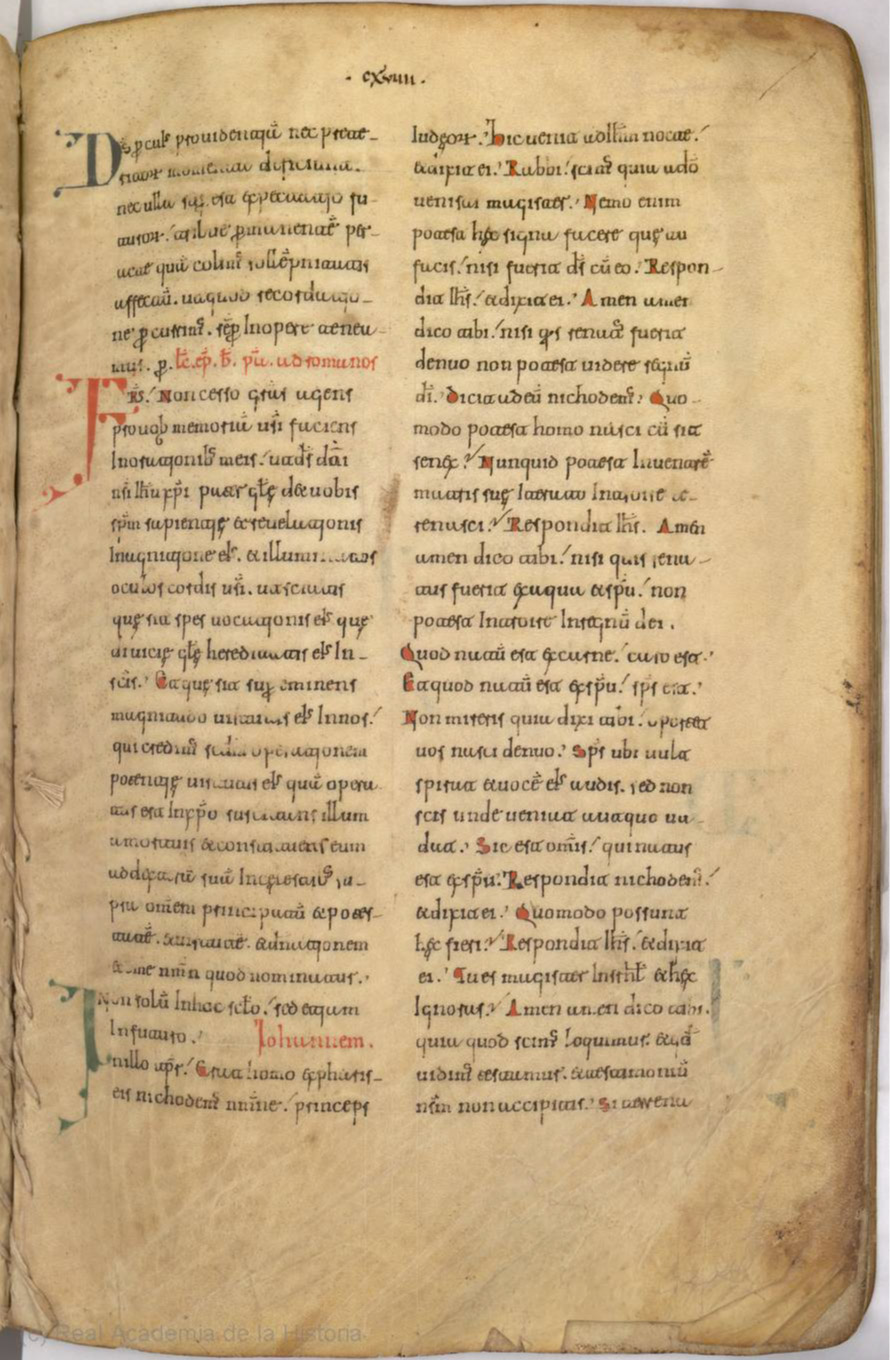 · cxviiii ·
Ds̄ p̄ cuiꝰ prouidentiā nec prete-
ritor̄ momenta deficiunt.
nec ulla sup̄ est expectatio fu-
turor̄. tribue p̄manentē per-
acte quā colimꝰ sollēpnitatis
affectū. ut quod recordatio-
ne p̄currimꝰ. sēp̄ In opere tenea-
mus. p̄. Lc̄. ep̄. b̄. pū. ad romanos
Frs̄. Non cesso grās agens
pro uob memoriā urī faciens
In orationib meis. ut ds̄ dn̄i
nr̄i ihū xp̄i pater glę̄ det uobis
sp̄m sapientię et reuelationis
In agnitione eis̄. et illuminatos
oculos cordis ur̄i. ut sciatis
quę sit spes uocationis eis̄ quę
diuicię glę̄ hereditatis eis̄ In-
sc̄is. Et quę sit sup̄ eminens
magnitudo uirtutis eis̄ In nos.
qui credimꝰ operationem
potentię uirtutis eis̄ quā opera
tus est In xp̄o suscitans illum
a mortuis et constituens eum
ad dexterā suā In celestibꝰ su-
pra om̄em principatū et potes-
tatē. et uirtutē. et dn̄ationem
et om̄e nm̄n quod nominatur.
Non solū In hoc scl̄o. sed etiam
In futuro. Iohannem.
In illo tp̄r. Erat homo ex pharis-
eis nichodemꝰ nm̄ne. princeps
Iudęor̄. hic uenit ad ihm̄ nocte.
et dixit ei. Rabbi. scimꝰ quia a dō
uenisti magister. Nemo enim
potest hęc signa facere quę tu
facis. nisi fuerit ds̄ cū eo. Respon-
dit ihs̄. et dixit ei. Amen amen
dico tibi. nisi qis renatꝰ fuerit
denuo non potest uidere regnū
dī. Dicit ad eū nichodemꝰ. Quo-
modo potest homo nasci cū sit
senex? Nunquid potest In uentrē
matris suę iterato Introire et
renasci? Respondit ihs̄. Amen
amen dico tibi. nisi quis rena-
tus fuerit ex aqua et sp̄u. non
potest Introire In regnū dei.
Quod natū est ex carne. caro est.
Et quod natū est ex sp̄u. sp̄s est.
Non mireris quia dixi tibi. oportet
uos nasci denuo. Sp̄s ubi uult
spirat et uocē eis̄ audis. sed non
scis unde ueniat aut quo ua-
dat. Sic est om̄is. qui natus
est ex sp̄u. Respondit nichodemꝰ.
et dixit ei. Quomodo possunt
hęc fieri? Respondit ihs̄. et dixit
ei. Tu es magister In isrl̄ et hęc
Ignoras? Amen amen dico tibi.
quia quod scimꝰ loquimur. et qd̄
uidimꝰ testamur. et testimoniū
nrm̄ non accipitis. Si terrena
(c) Real Academia de la Historia